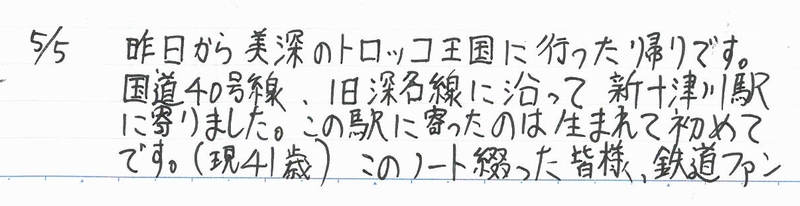 5/5 昨日から美深のトロッコ王国に行った帰りです。
国道40号線、旧深名線に沿って新十津川駅
に寄りました。この駅に寄ったのは生まれて初めて
です。(現41歳) このノート綴った皆様、鉄道ファン